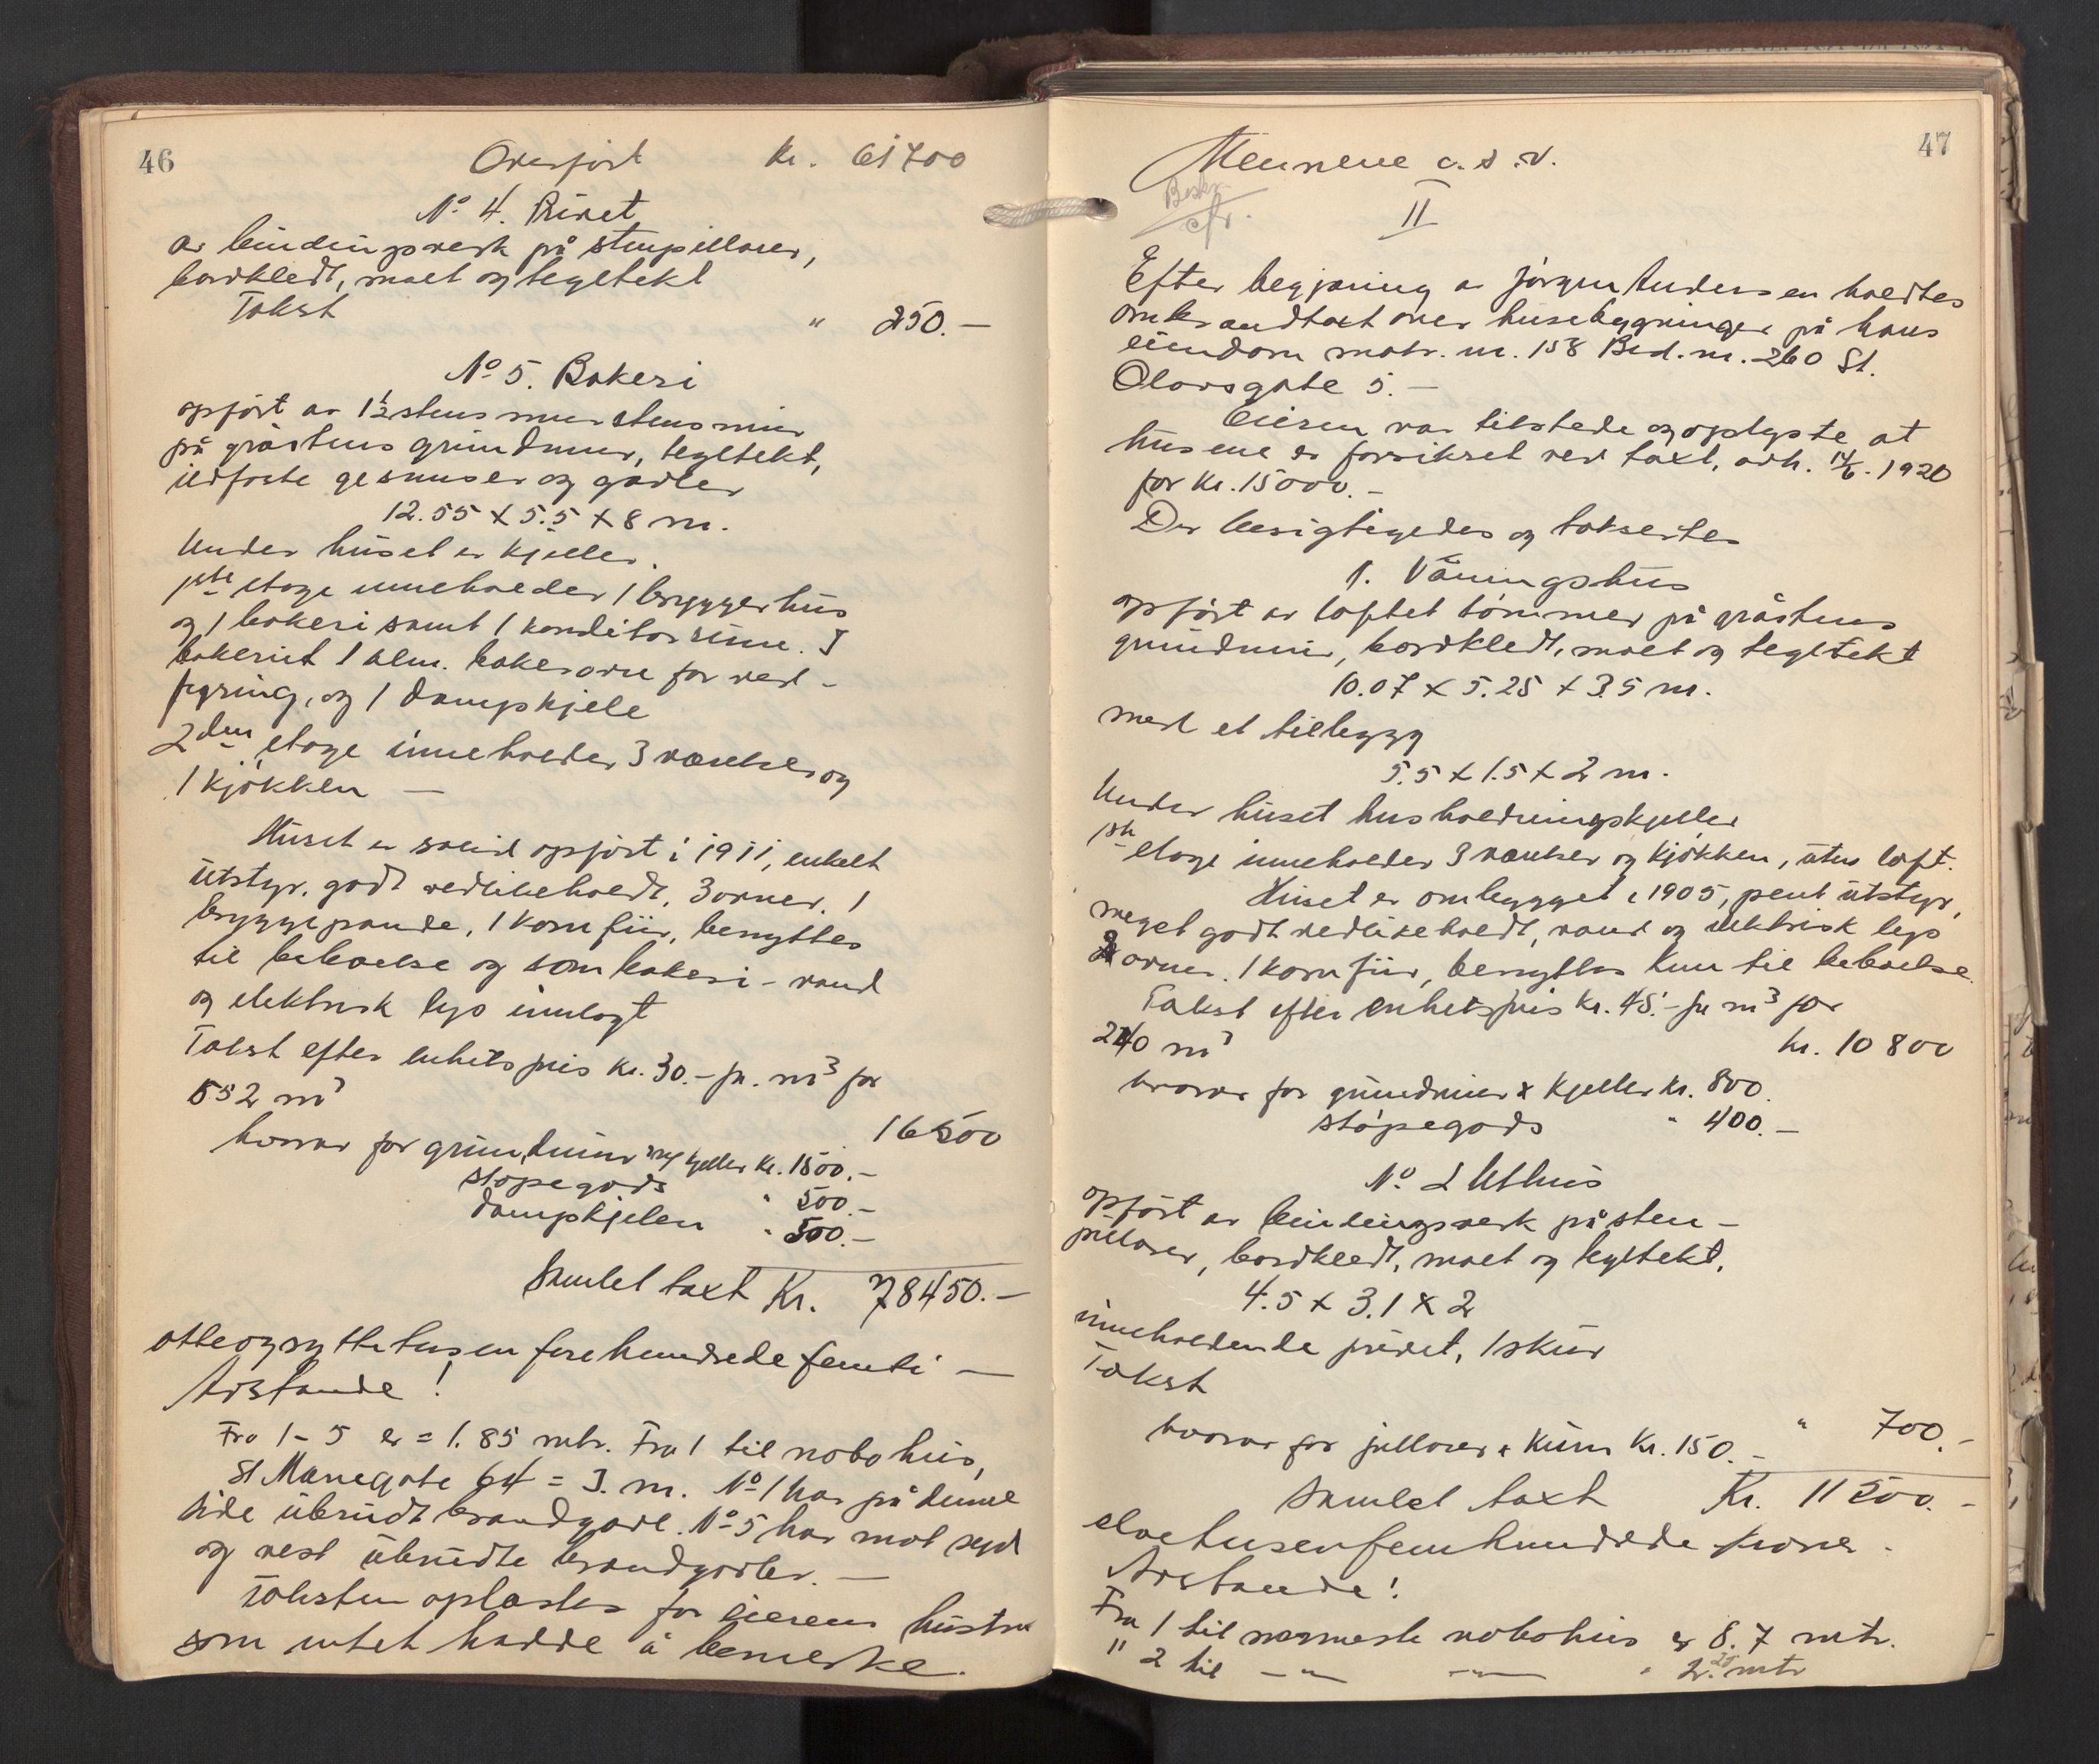 46
Overført kr. 61700
No 4. Privet
av bindingsverk på stenpillarer,
bordkledt, malt og tegltekt
Takst " 250.—
No 5. Bakeri
opført av 1½ stens murstensmur
på gråstens grundmur, tegltekt,
utforte gesimser og gavler
12.55 x 5.5 x 8 m.
Under huset er kjeller.
1ste etage inneholder 1 bryggerhus
og 1 bakeri samt 1 konditorrum. I
bakeriet 1 alm. bakerovn for ved-
fyring, og 1 dampkjele
2den etage inneholder 3 værelser og
1 kjøkken —
Huset er solid opført i 1911, enkelt
utstyr, godt vedlikeholdt, 3 ovner, 1
bryggepande, 1 komfür, benyttes
til beboelse og som bakeri - vand
og elektrisk lys innlagt
Takst efter enhetspris kr. 30.- pr. m3 for
552 m3
16500
hvorav for grundmur m/ kjeller kr. 1500.—
støpegods " 500.—
dampkjelen " 500.—
Samlet taxt Kr. 78450.—
otteogsyttitusen firehundrede femti —
Avstande!
Fra 1 - 5 er = 1.85 mtr. Fra 1 til nabohus,
St Mariegate 64 = 3. m. No 1 har på denne
side ubrudt brandgavl. No 5 har mot syd
og vest ubrudte brandgavler. —
Taksten oplæstes for eierens hustru
som intet hadde å bemerke.
47
Mennene c. s. v.
Beskr.
cfr.
II
Efter begjæring av Jørgen Andersen holdtes
ombrandtaxt over husebygninger på hans
eiendom matr. nr. 158 Brd. nr. 260 St.
Olavsgate 5. —
Eieren var tilstede og oplyste at
husene er forsikret ved taxt, avh. 14/6. 1920
for kr. 15000.—
Der besigtigedes og taksertes
1. Våningshus
opført av laftet tømmer på gråstens
grundmur, bordkledt, malt og tegltekt
10.07 x 5.25 x 3.5 m.
med et tilbygg
5.5 x 1.5 x 2 m.
Under huset husholdningskjeller
1ste etage inneholder 3 værelser og kjøkken, uten loft.
Huset er ombygget i 1905, pent utstyr,
meget godt vedlikeholdt, vand og elektrisk lys
2 ovner. 1 komfür, benyttes kun til beboelse.
Takst efter enhetspris kr. 45.- pr m3 for
240 m3 kr. 10 800
hvorav for grundmur & kjeller kr. 800.
støpegods " 400.—
No. 2 Uthus
opført av bindingsverk på sten-
pillarer, bordkledt, malt og tegltekt.
4.5 x 3.1 x 2
inneholdende privet, 1 skur
Takst
" 700.—
hvorav for pillarer & kum Kr. 150.—
Samlet taxt Kr. 11500.—
elvetusenfemhundrede kroner.
Avstande!
Fra 1 til nærmeste nabohus er 8.7 mtr.
" 2 til — " — — " — " 2.25 mtr